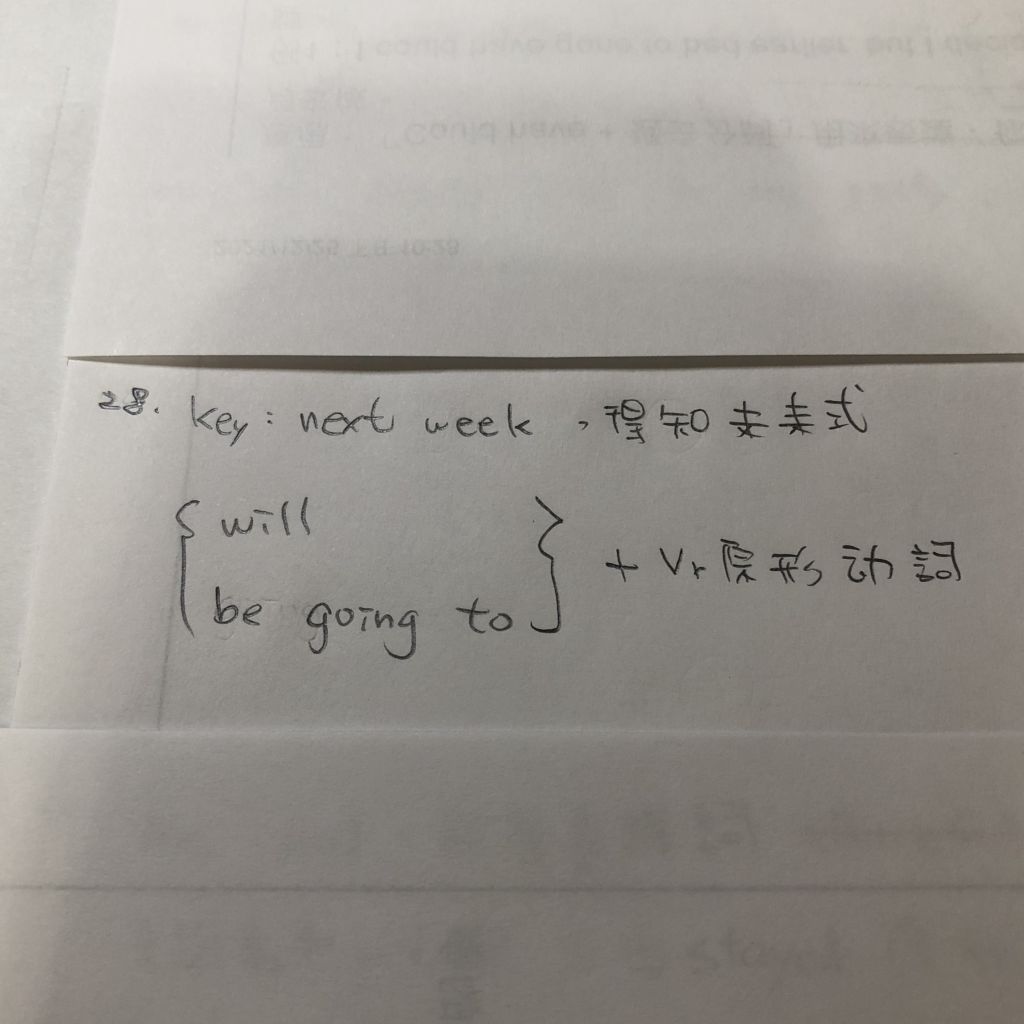 28. key: next week，得知未來式
{ will
be going to } + Vr原形动詞